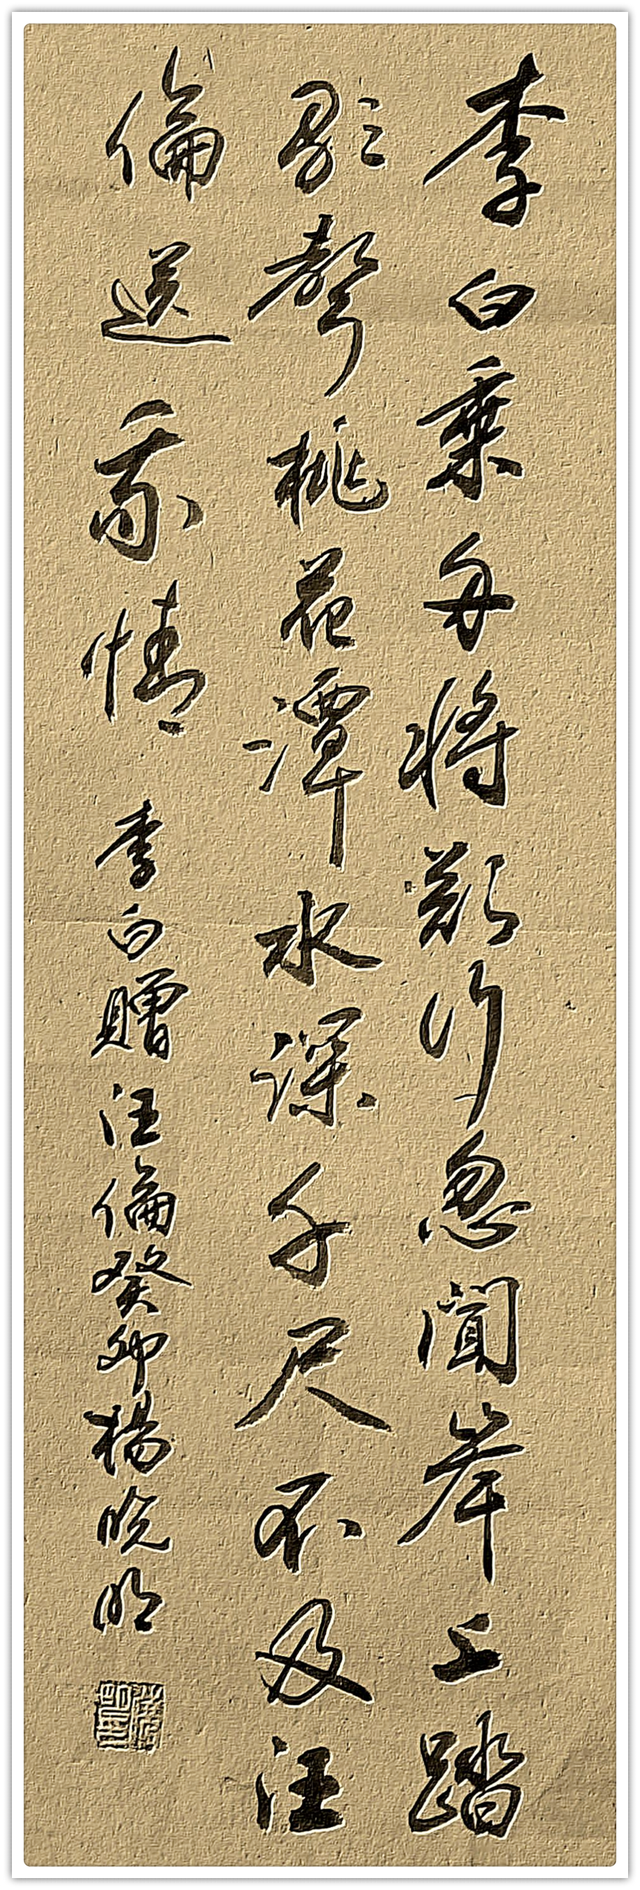 李白乘舟将欲行忽聞岸上踏
歌聲桃花潭水深千尺不及汪
倫送我情
李白贈汪倫癸卯楊晓明